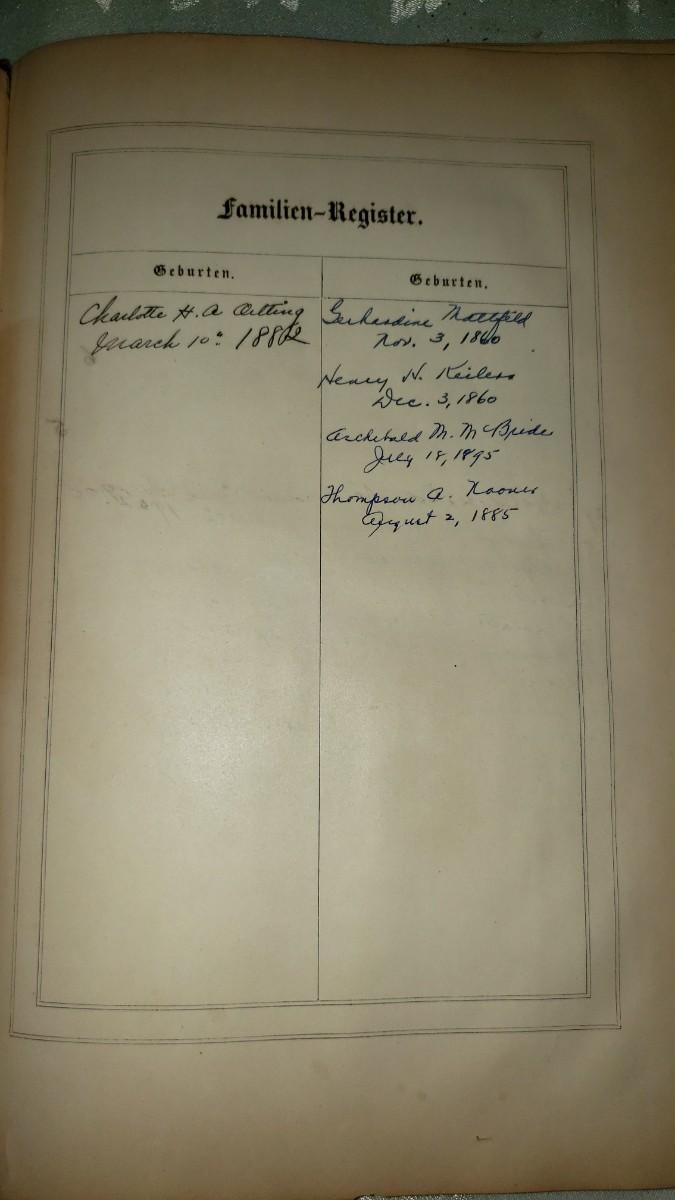 Familien-Register.
Geburten.
Charlotte H. A Oetting
March 10th 1882
Geburten.
Gerhardine Mattfeld
Nov. 3, 1860
Henry H. Keilers
Dec. 3, 1860
Archibald M. McBride
July 18, 1895
Thompson A. Nooner
August 2, 1885